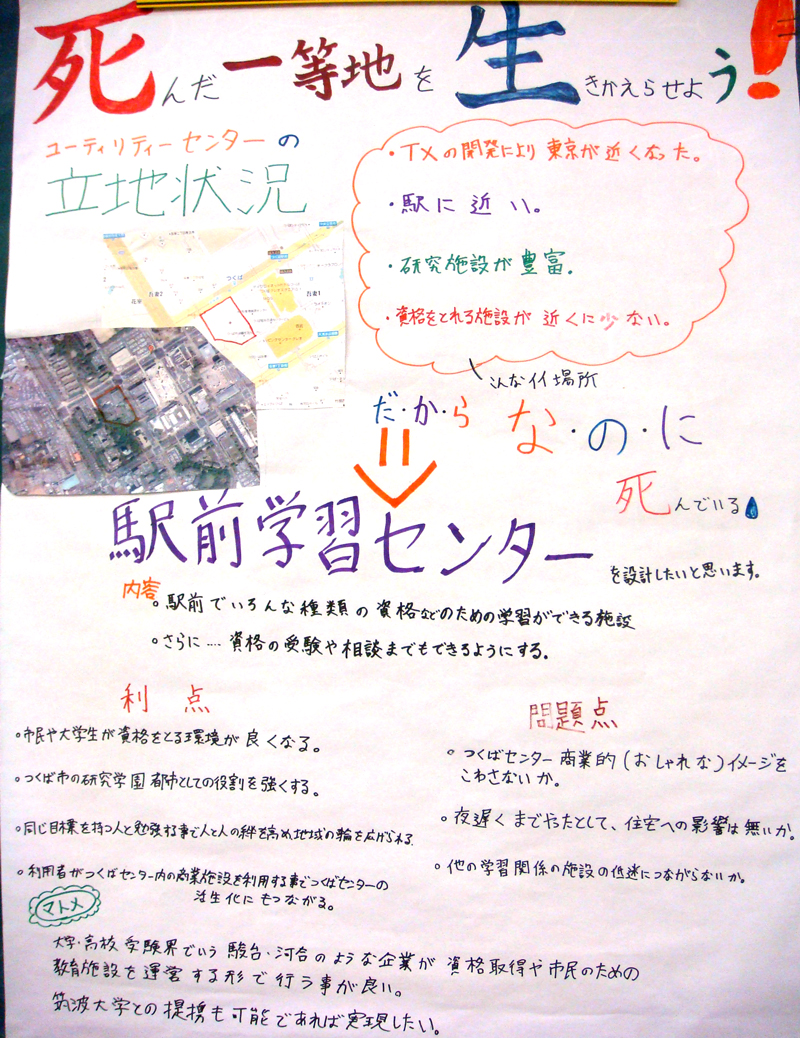 死んだ一等地を生きかえらせよう!
ユーティリティーセンターの
立地状況
・TXの開発により東京が近くなった。
・駅に近い。
・研究施設が豊富。
・資格をとれる施設が近くに少ない。
こんなイイ場所
だ・か・ら
な・の・に
死んでいる
つくば
吾妻2
吾妻1
花室
駅前学習センター
を設計したいと思います。
内容
○駅前でいろんな種類の資格などのための学習ができる施設
○さらに‥‥資格の受験や相談までもできるようにする。
利点
○市民や大学生が資格をとる環境が良くなる。
○つくば市の研究学園都市としての役割を強くする。
○同じ目標を持つ人と勉強する事で人と人の絆を高め地域の輪を広げられる.
○利用者がつくばセンター内の商業施設を利用する事でつくばセンターの
活性化にもつながる。
問題点
○つくばセンター商業的(おしゃれな)イメージを
こわさないか。
○夜遅くまでやったとして、住宅への影響は無いか。
○他の学習関係の施設の低迷につながらないか。
マトメ
大学・高校受験界でいう駿台・河合のような企業が資格取得や市民のための
教育施設を運営する形で行う事が良い。
筑波大学との提携も可能であれば実現したい。